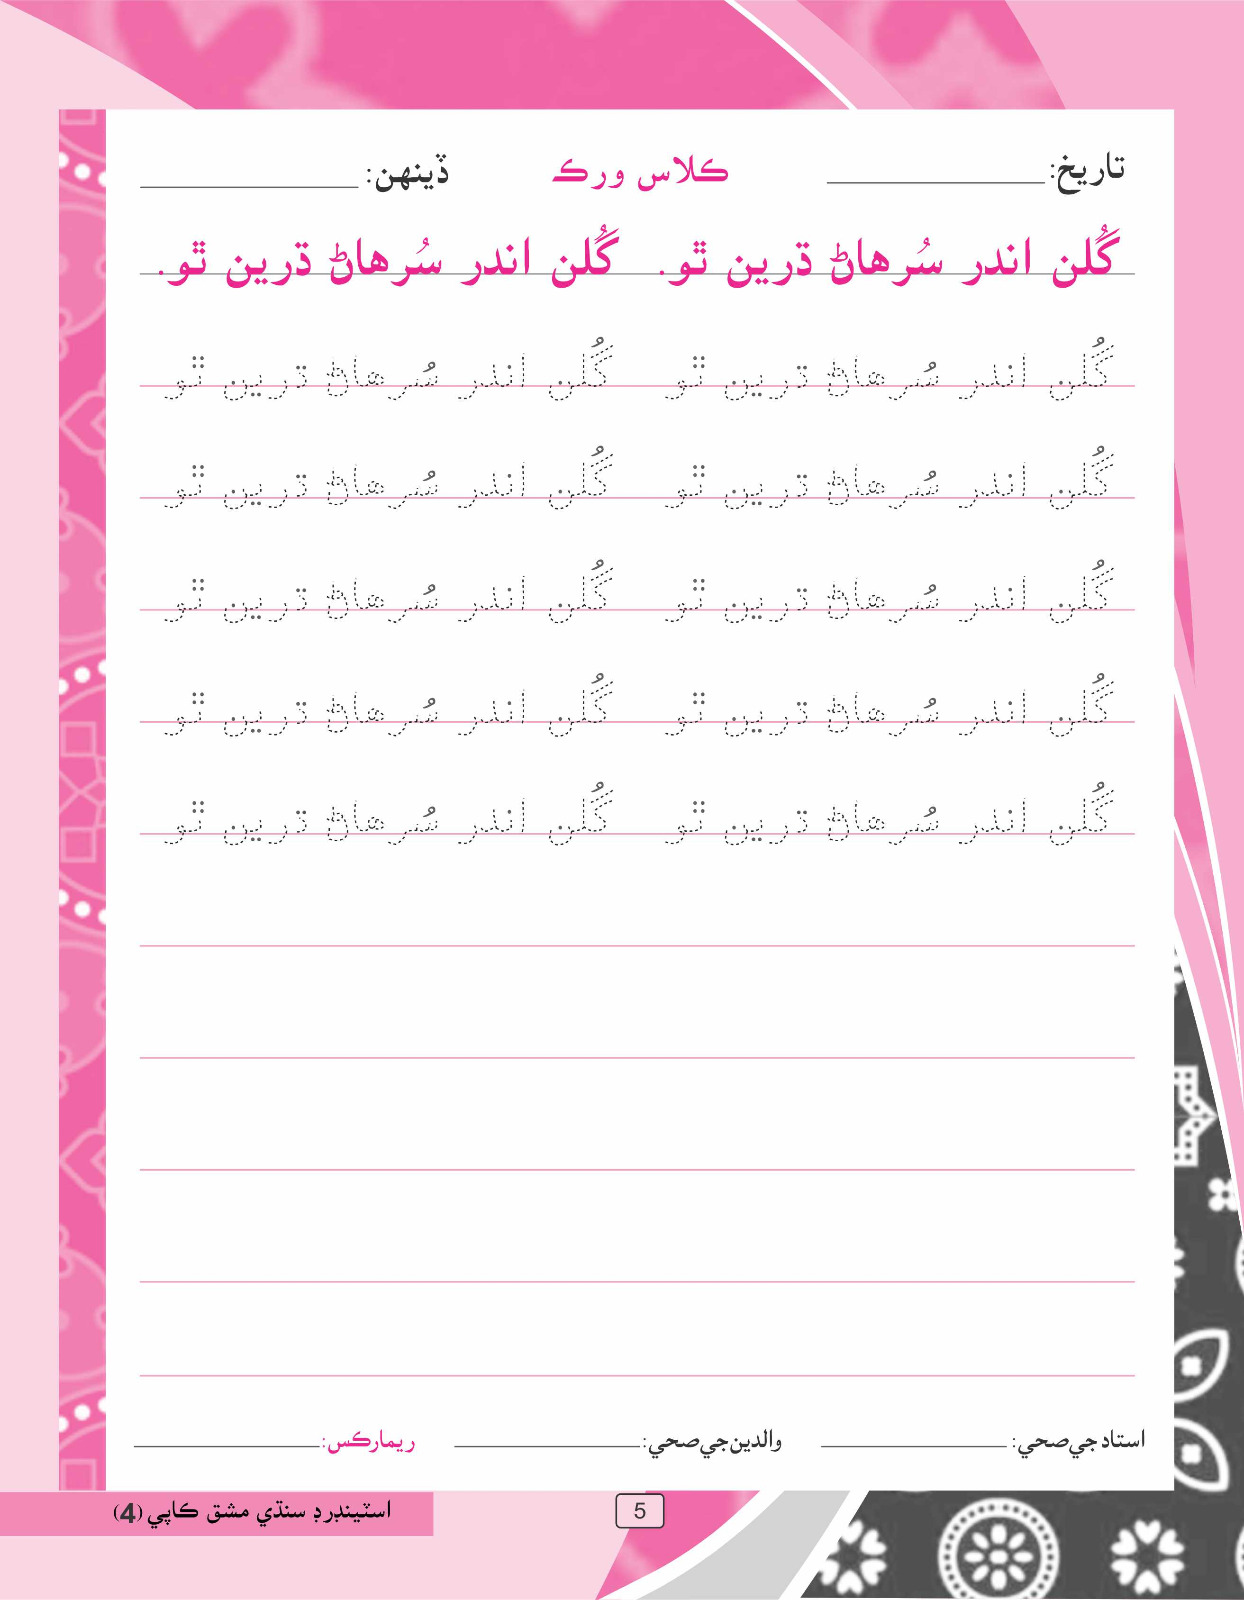 تاريخ: ڪلاس ورڪ ڏينهن:
گُلن اندر سُرهاڻ ڌرين ٿو. گُلن اندر سُرهاڻ ڌرين ٿو.
گُلن اندر سُرهاڻ ڌرين ٿو گُلن اندر سُرهاڻ ڌرين ٿو
گُلن اندر سُرهاڻ ڌرين ٿو گُلن اندر سُرهاڻ ڌرين ٿو
گُلن اندر سُرهاڻ ڌرين ٿو گُلن اندر سُرهاڻ ڌرين ٿو
گُلن اندر سُرهاڻ ڌرين ٿو گُلن اندر سُرهاڻ ڌرين ٿو
گُلن اندر سُرهاڻ ڌرين ٿو گُلن اندر سُرهاڻ ڌرين ٿو
استاد جي صحي: والدين جي صحي: ريمارڪس:
5
اسٽينڊرڊ سنڌي مشق ڪاپي (4)